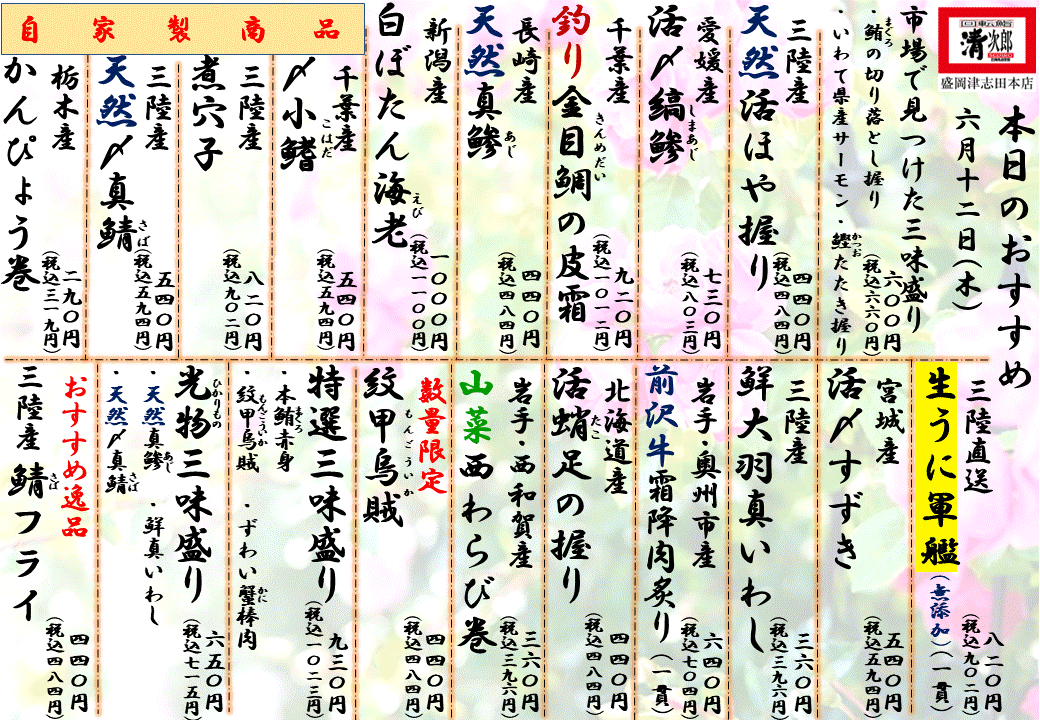 回転鮨
清次郎
盛岡津志田本店
本日のおすすめ
六月十二日(木)
市場で見つけた三味盛り
・鮪の切り落とし握り
まぐろ
・いわて県産サーモン・鰹たたき握り
かつお
六〇〇円
(税込六六〇円)
三陸産
天然活ほや握り
四四〇円
(税込四八四円)
愛媛産
活〆縞鯵
しまあじ
七三〇円
(税込八〇三円)
千葉産
釣り金目鯛の皮霜
きんめだい
九二〇円
(税込一〇一二円)
長崎産
天然真鯵
あじ
四四〇円
(税込四八四円)
新潟産
白ぼたん海老
えび
一〇〇〇円
(税込一一〇〇円)
自家製商品
千葉産
〆小鰭
こはだ
五四〇円
(税込五九四円)
三陸産
煮穴子
八二〇円
(税込九〇二円)
三陸産
天然〆真鯖
さば
五四〇円
(税込五九四円)
栃木産
かんぴょう巻
二九〇円
(税込三一九円)
三陸直送
生うに軍艦
(無添加)(一貫)
八二〇円
(税込九〇二円)
宮城産
活〆すずき
五四〇円
(税込五九四円)
三陸産
鮮大羽真いわし
三六〇円
(税込三九六円)
岩手・奥州市産
前沢牛霜降肉炙り(一貫)
六四〇円
(税込七〇四円)
北海道産
活蛸足の握り
たこ
四四〇円
(税込四八四円)
岩手・西和賀産
山菜西わらび巻
三六〇円
(税込三九六円)
数量限定
紋甲烏賊
もんごういか
四四〇円
(税込四八四円)
特選三味盛り
・本鮪赤身
まぐろ
・紋甲烏賊
もんごういか
・ずわい蟹棒肉
かに
九三〇円
(税込一〇二三円)
光物三味盛り
ひかりもの
・天然真鯵
あじ
・鮮真いわし
・天然〆真鯖
さば
六五〇円
(税込七一五円)
おすすめ逸品
三陸産 鯖フライ
さば
四四〇円
(税込四八四円)